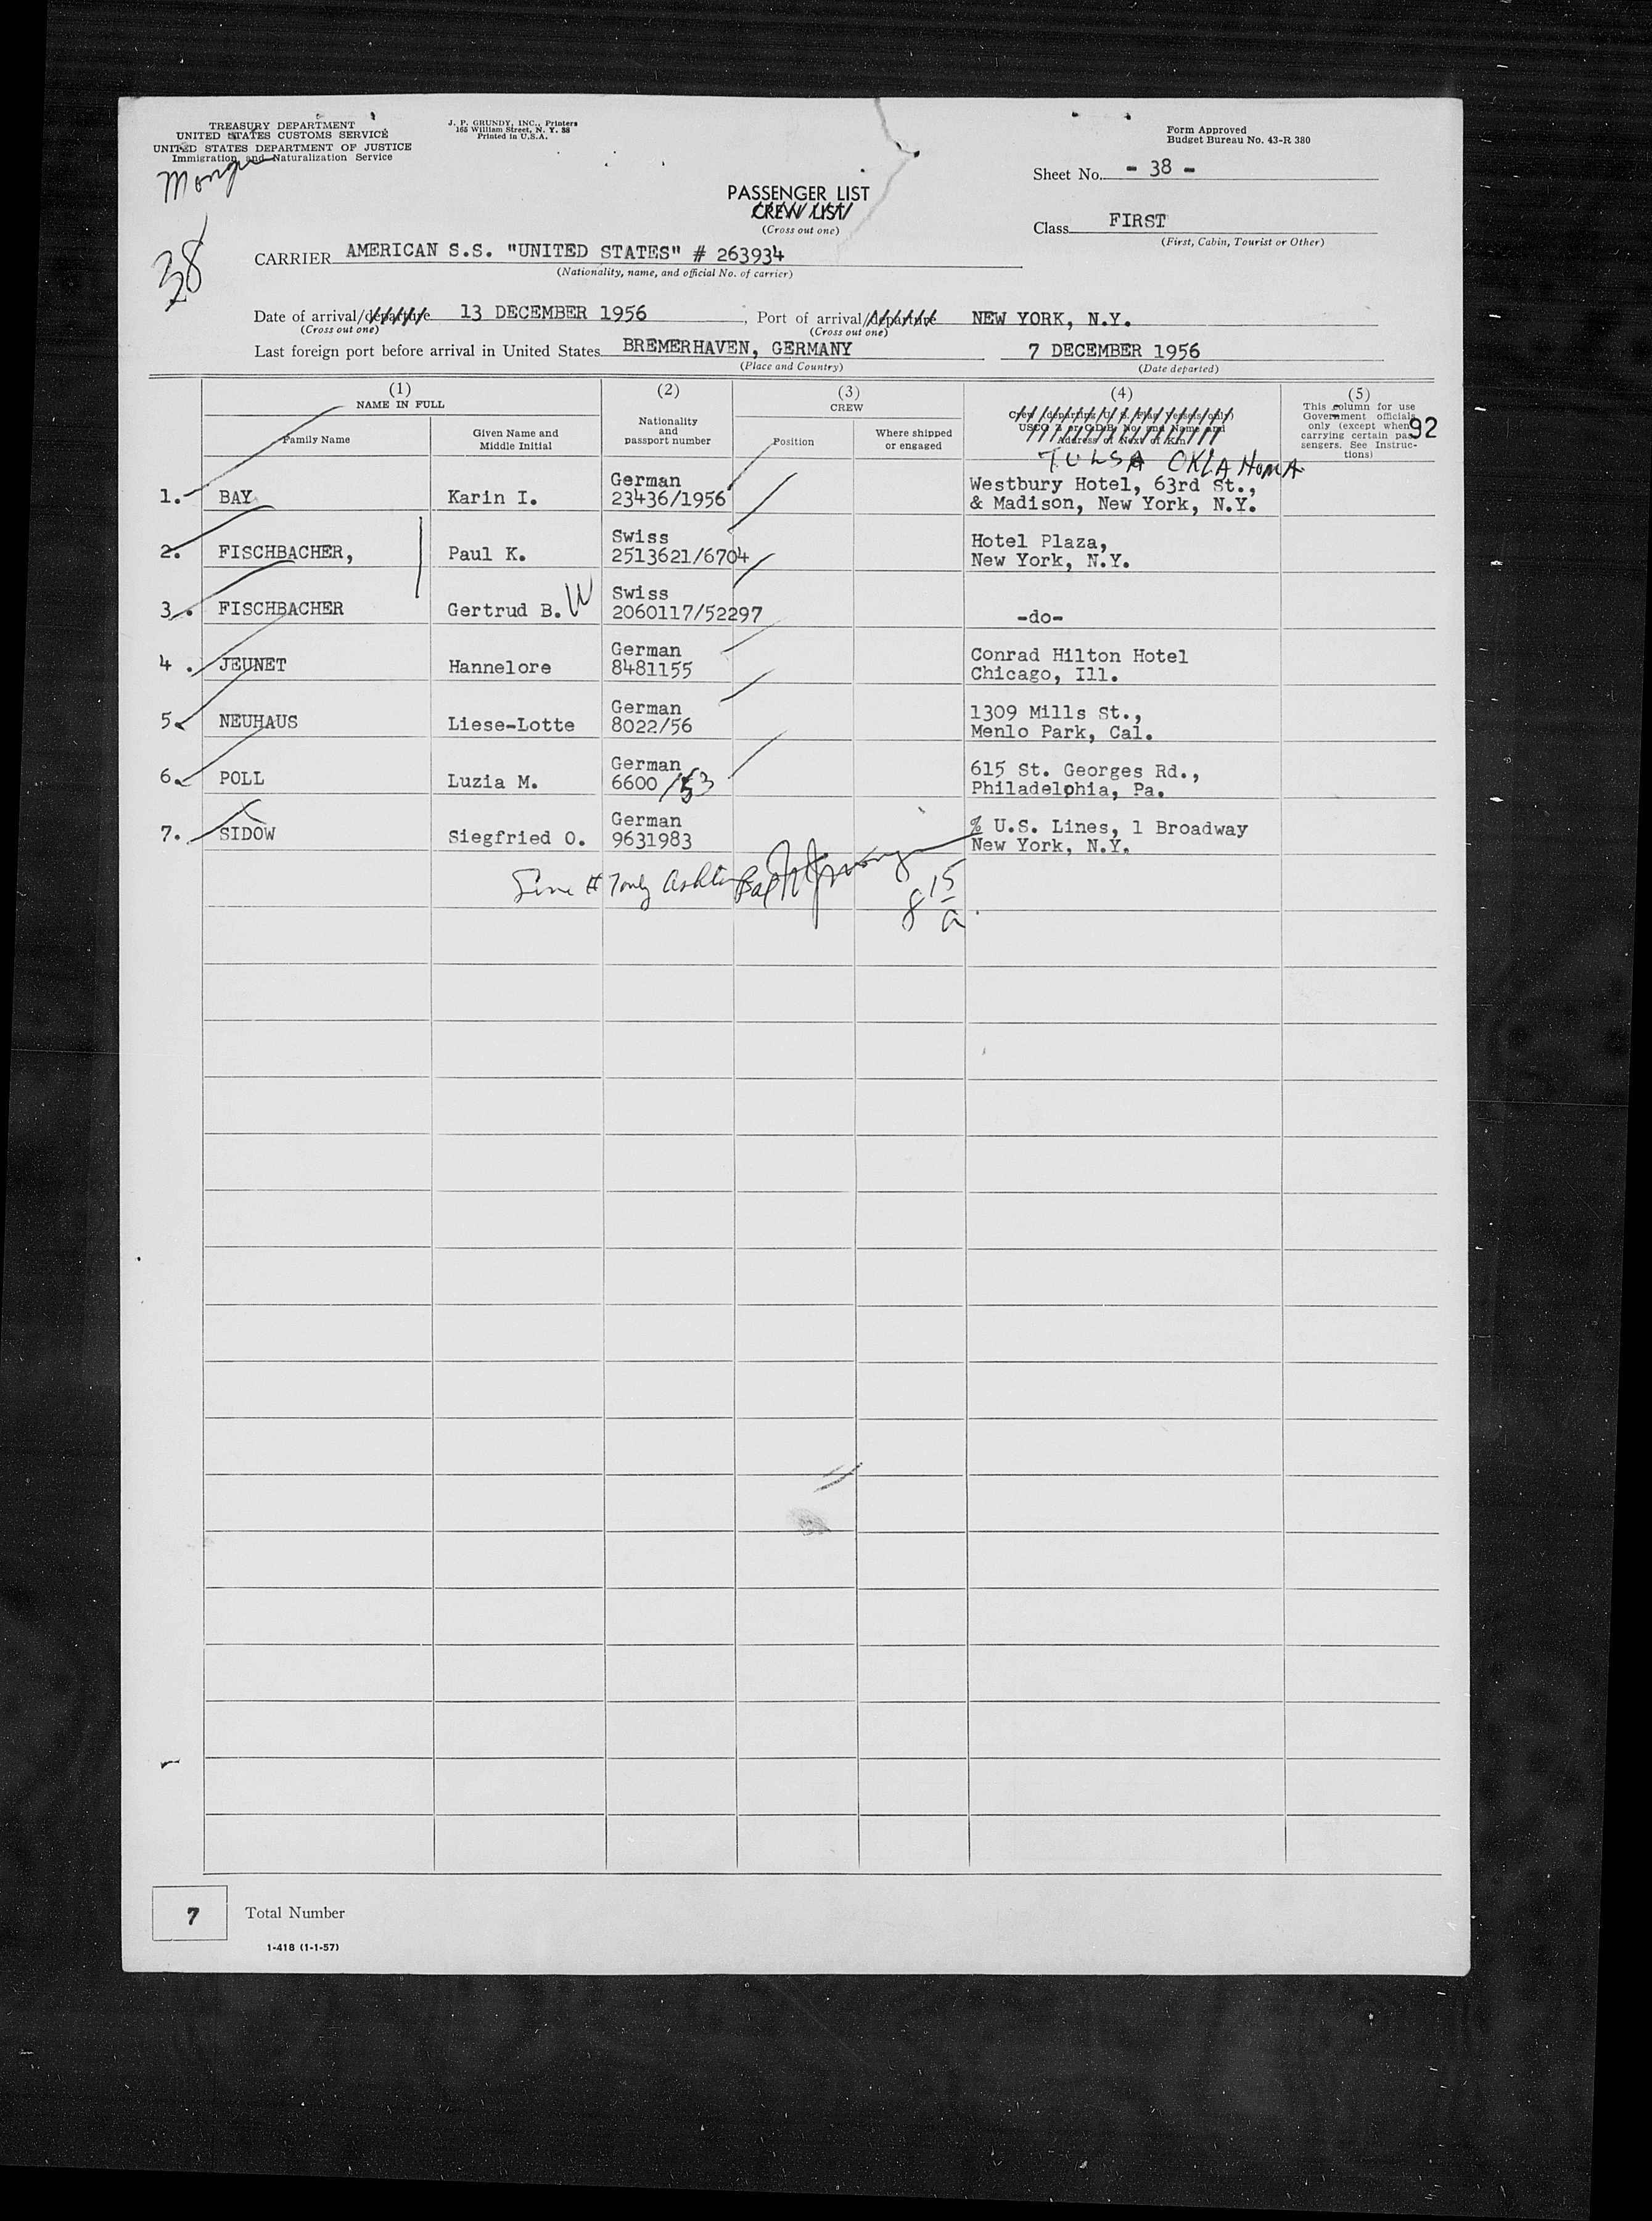 TREASURY DEPARTMENT
UNITED STATES CUSTOMS SERVICE
UNITED STATES DEPARTMENT OF JUSTICE
Immigration and Naturalization Service
J. P. GRUNDY, INC., Printers
165 William Street, N. Y. 38
Printed in U.S.A.
Form Approved
Budget Bureau No. 43-R 380
Sheet No. - 38 -
PASSENGER LIST
CREW LIST
(Cross out one)
Class FIRST
(First, Cabin, Tourist or Other)
38
CARRIER AMERICAN S.S. "UNITED STATES" # 263934
(Nationality, name, and official No. of carrier)
Date of arrival/departure 13 DECEMBER 1956, Port of arrival/departure NEW YORK, N.Y.
(Cross out one) (Cross out one)
Last foreign port before arrival in United States BREMERHAVEN, GERMANY 7 DECEMBER 1956
(Place and Country) (Date departed)
(1) (2) (3) (4) (5)
NAME IN FULL
Family Name
Given Name and
Middle Initial
Nationality
and
passport number
CREW
Position
Where shipped
or engaged
Crew (departing U. S. Flag Vessels only)
USCG Z or C.D.B. No. and Name and
Address of Next of Kin
This column for use
Government officials
only (except when
carrying certain pas-
sengers. See Instruc-
tions)
92
TULSA OKLAHOMA
1. BAY Karin I. German
23436/1956 Westbury Hotel, 63rd St.,
& Madison, New York, N.Y.
2. FISCHBACHER, Paul K. Swiss
2513621/6704 Hotel Plaza,
New York, N.Y.
3. FISCHBACHER Gertrud B. W Swiss
2060117/52297 -do-
4. JEUNET Hannelore German
8481155 Conrad Hilton Hotel
Chicago, Ill.
5. NEUHAUS Liese-Lotte German
8022/56 1309 Mills St.,
Menlo Park, Cal.
6. POLL Luzia M. German
6600 /53 615 St. Georges Rd.,
Philadelphia, Pa.
7. SIDOW Siegfried O. German
9631983 % U.S. Lines, 1 Broadway
New York, N.Y.
8 15
a
7 Total Number
1-418 (1-1-57)